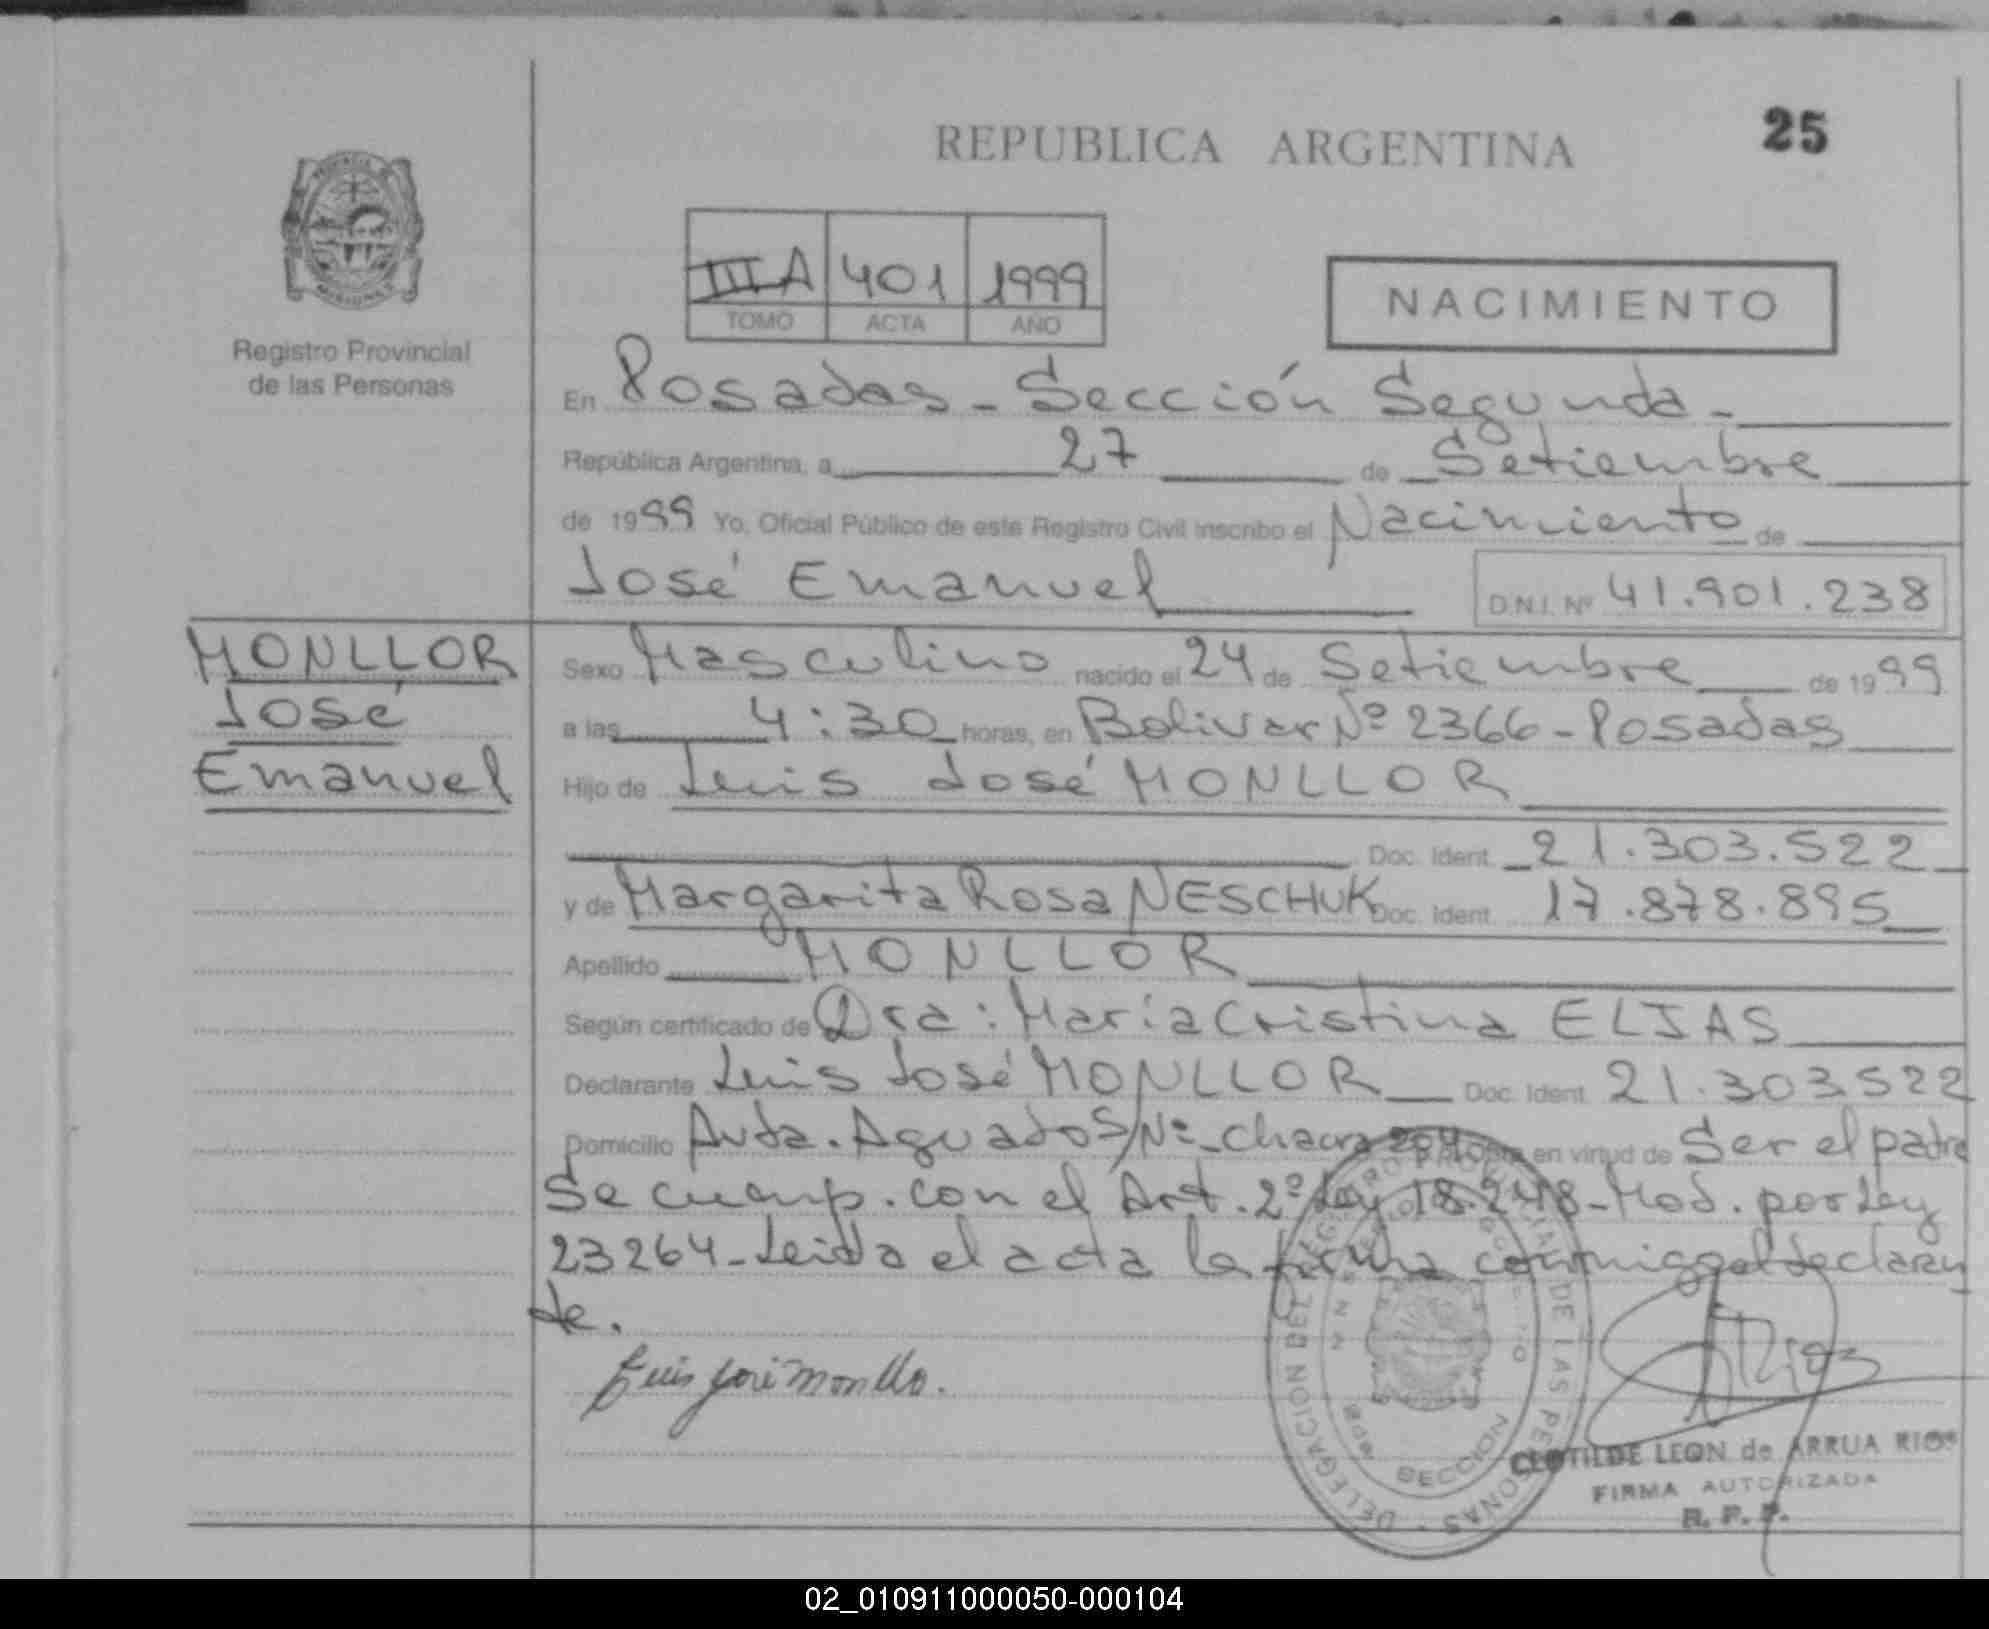 25
REPUBLICA ARGENTINA
PROVINCIA
MISIONES
Registro Provincial
de las Personas
III A 401 1999
TOMO ACTA AÑO
NACIMIENTO
En Posadas - Sección Segunda -
República Argentina, a 27 de Setiembre
de 1999 Yo, Oficial Público de este Registro Civil inscribo el Nacimiento de
José Emanuel D.N.I. Nº 41.901.238
MONLLOR
José
Emanuel
Sexo Masculino nacido el 24 de Setiembre de 1999
a las 4:30 horas, en Bolivar Nº 2366 - Posadas
Hijo de Luis José MONLLOR
Doc. Ident. 21.303.522
y de Margarita Rosa NESCHUK Doc. Ident. 17.878.895
Apellido MONLLOR
Según certificado de Dra: María Cristina ELIAS
Declarante Luis José MONLLOR Doc. Ident. 21.303522
Domicilio Avda. Aguado S/Nº - Chacra 204 Obra en virtud de Ser el padre
Se cump. con el Art. 2º Ley 18.248 - Mod. por Ley
23264 - Leida el acta la firma conmigo el declaran
te.
Luis José Monllo.
DELEGACION DEL REGISTRO PROVINCIAL DE LAS PERSONAS
SECCION
ARios
CLOTILDE LEON de ARRUA RIOS
FIRMA AUTORIZADA
R. P. P.
02_010911000050-000104